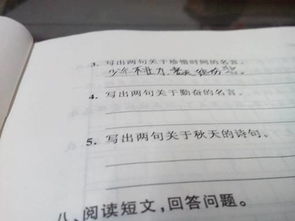 3. 写出两句关于珍惜时间的名言。
少年不努力,老大徒伤悲。
4. 写出两句关于勤奋的名言。
5. 写出两句关于秋天的诗句。
八、阅读短文,回答问题。